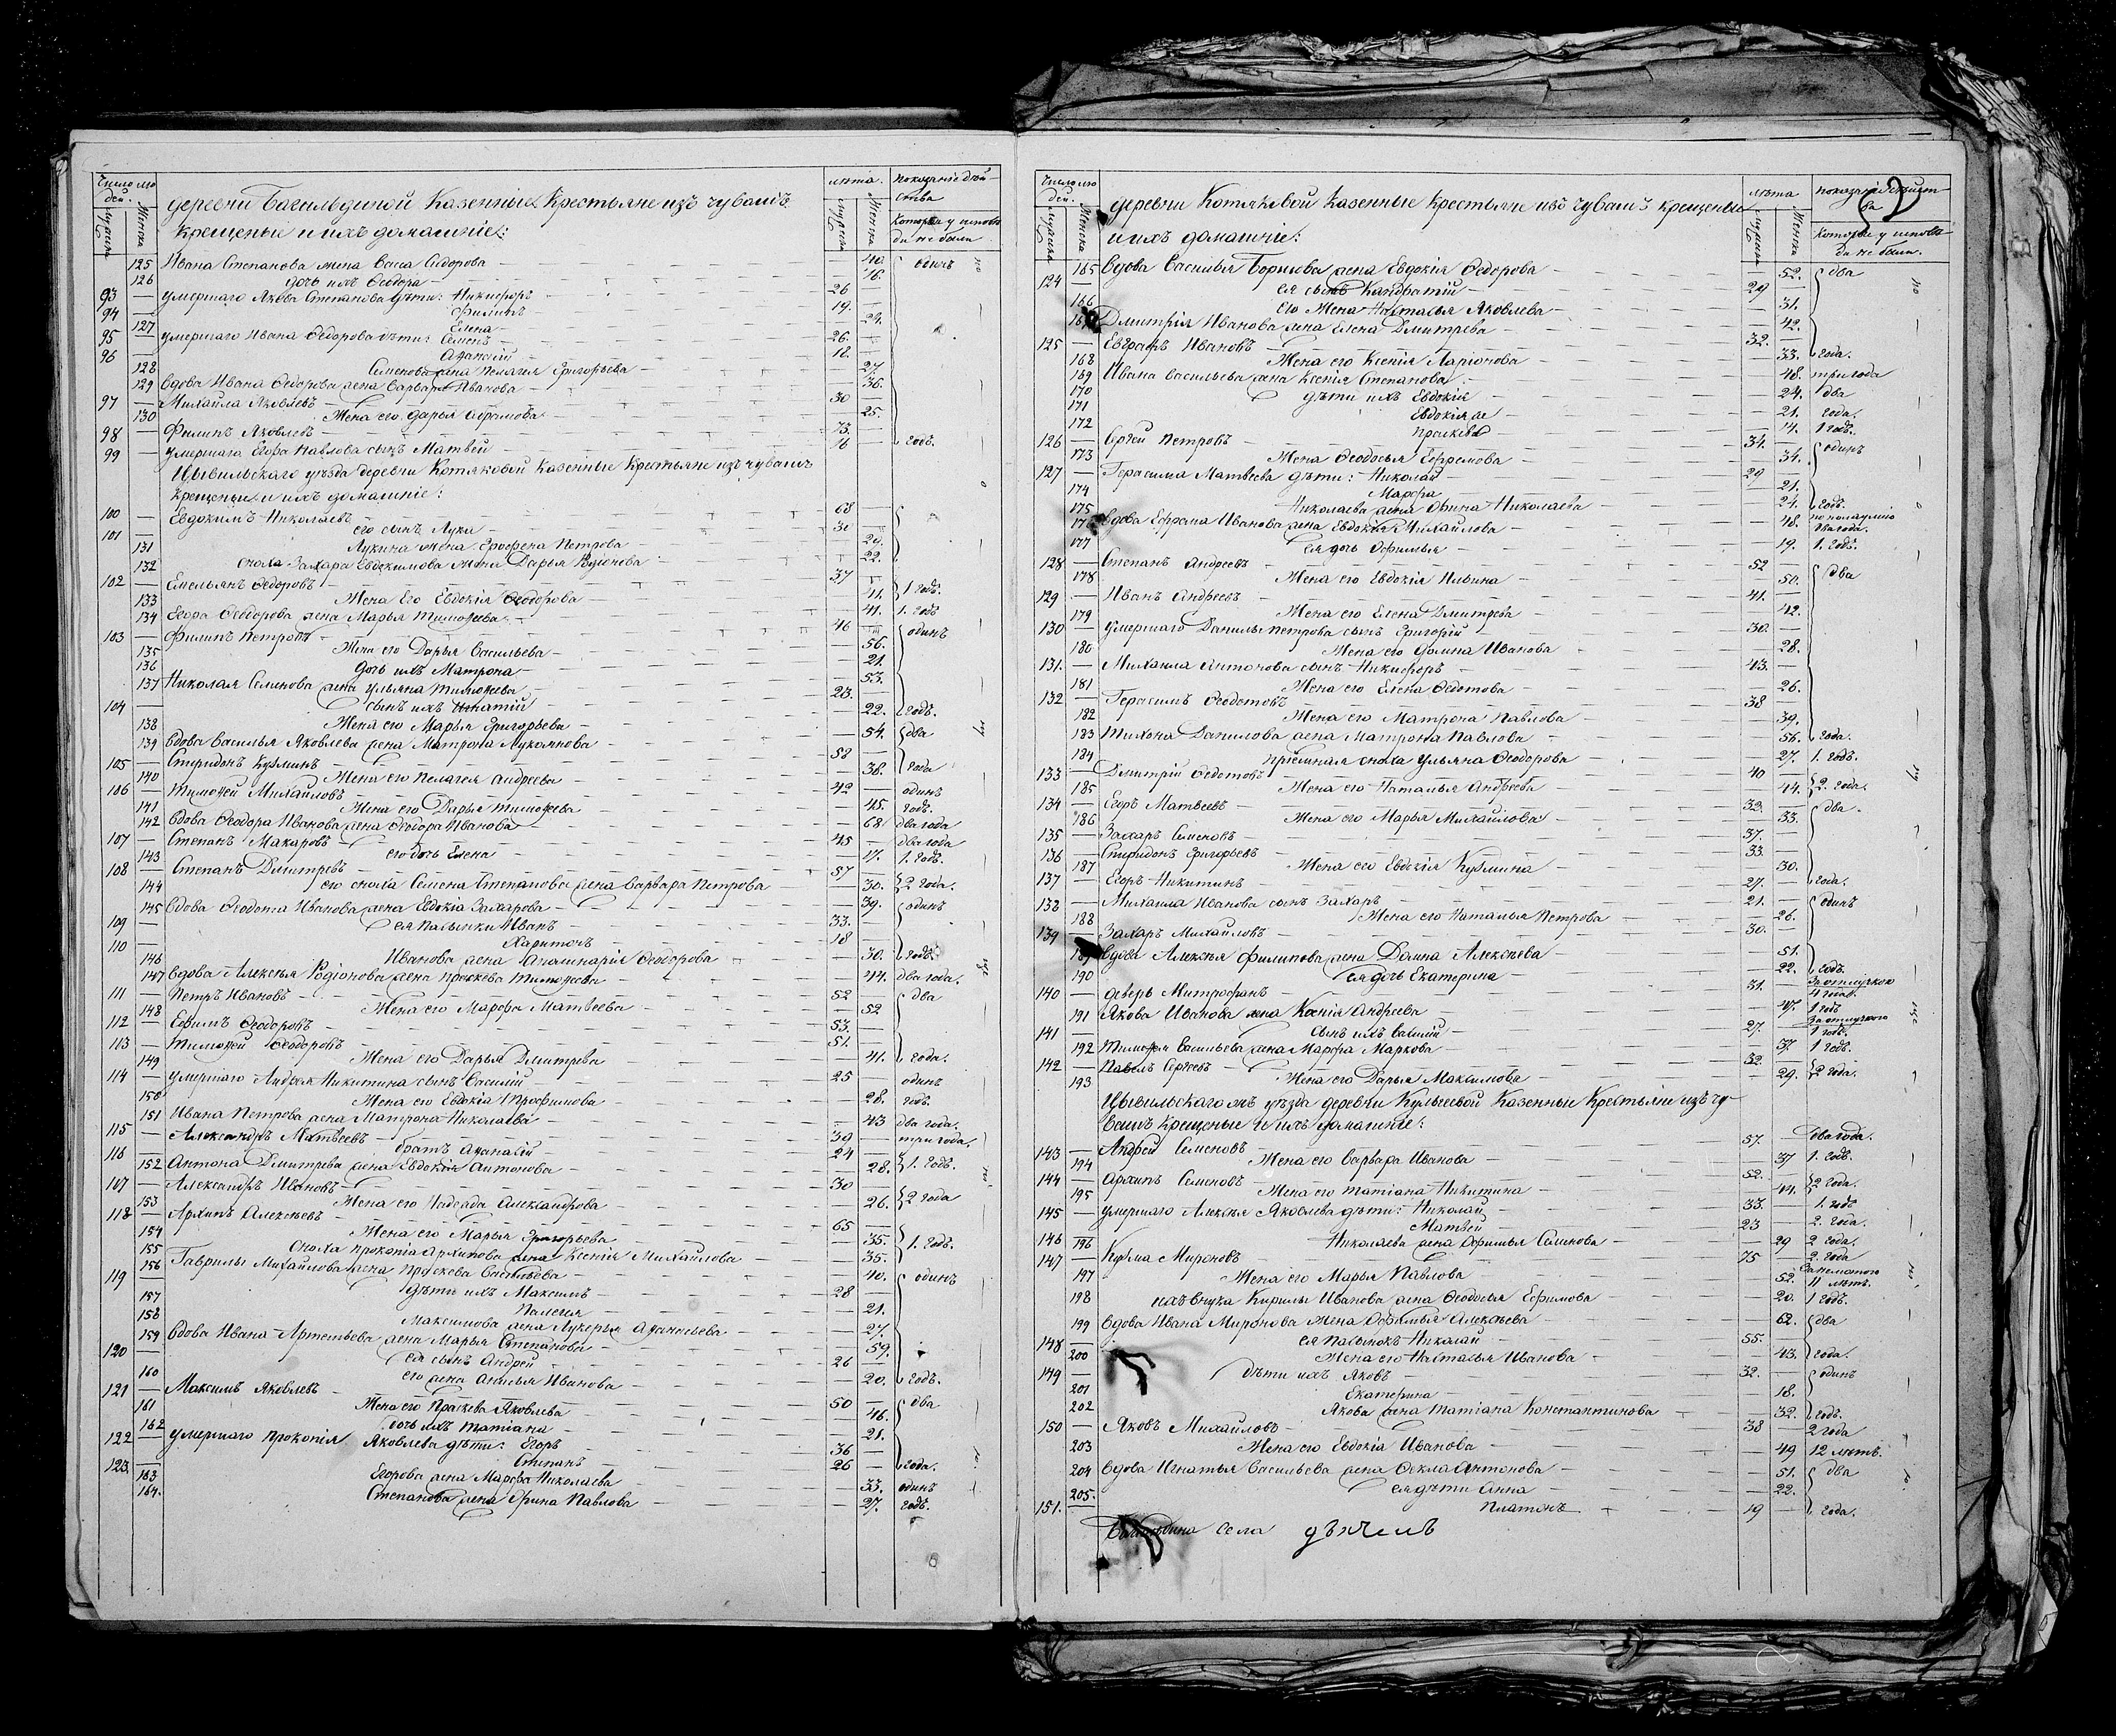 Число лю
дей.
Мужеска
Женска
деревни Багильдиной Казенные Крестьяне изъ чувашъ
крещеные и ихъ домашніе:
лѣта.
Мужеска
Женска
показаніе дѣй-
ства
которые у испове
ди не были
125 Ивана Степанова жена Васса Сидорова — 40. одинъ
126 дочь ихъ Ѳедора — 16.
93 — умершаго Якова Степанова дѣти: Никифоръ — 26
94 — Филипъ — 19.
127 Елена — 24.
95 — умершаго Ивана Ѳедорова дѣти: Семенъ — 26.
96 — Афанасій — 18.
128 Семенова жена Пелагія Григорьева — 27.
129 вдова Ивана Ѳедорова жена Варвара Иванова — 36.
97 — Михайла Яковлевъ — 30
130 Жена его Дарья Абрамова — 25.
98 — Филипъ Яковлевъ — 73.
99 — умершаго Егора Павлова сынъ Матвей — 16 годъ.
Цывильскаго уѣзда деревни Котяковой Казенные Крестьяне изъ чувашъ
крещеные и ихъ домашніе:
100 — Евдокимъ Николаевъ — 68
101 — его сынъ Лука — 30
131 Лукина жена Ерофена Петрова — 29.
132 сноха Захара Евдокимова жена Дарья Родіонова — 22.
102 — Емельянъ Ѳедоровъ — 37
133 Жена Его Евдокія Ѳеодорова — 41. 1 годъ.
134 Егора Ѳеодорова жена Марья Тимоѳеева — 41. 1. годъ
103 — Филипъ Петровъ — 46 одинъ
135 Жена его Дарья Васильева — 56.
136 дочь ихъ Матрона — 21.
137 Николая Семенова жена Ульяна Тимоѳеева — 53.
104 — сынъ ихъ Игнатій — 23.
138 Жена его Марья Григорьева — 22. годъ.
139 вдова Василья Яковлева жена Матрона Лукоянова — 54. два
105 — Спиридонъ Кузминъ — 58
140 Жена его Пелагея Андреева — 38. года
106 — Тимоѳей Михайловъ — 42 одинъ
141 Жена его Дарья Тимоѳеева — 45. годъ.
142 вдова Ѳеодора Иванова жена Ѳеодора Иванова — 68 два года
107 — Степанъ Макаровъ — 45 два года
143 его дочь Елена — 17. 1. годъ.
108 — Степанъ Дмитревъ — 57
144 его сноха Семена Степанова жена Варвара Петрова — 30. 2 года.
145 вдова Ѳедота Иванова жена Евдокія Захарова — 39. одинъ
109 — ея пасынки Иванъ — 33.
110 — Харитонъ — 18
146 Иванова жена Апалинарія Ѳеодорова — 30. годъ.
147 вдова Алексѣя Родіонова жена Праскева Тимоѳеева — 44. два года.
111 — Петръ Ивановъ — 52 два
148 Жена его Марфа Матвеева — 52
112 — Ефимъ Ѳеодоровъ — 53.
113 — Тимоѳей Ѳеодоровъ — 51.
149 Жена его Дарья Дмитрева — 41. года.
114 — умершаго Андрея Никитина сынъ Василій — 25 одинъ
150 Жена его Евдокія Трофимова — 28. годъ.
151 Ивана Петрова жена Матрона Николаева — 43 два года.
115 — Александръ Матвеевъ — 39 три года.
116 — братъ Афанасій — 24
152 Антона Дмитрева жена Евдокія Антонова — 28. 1. годъ.
117 — Александръ Ивановъ — 30
153 Жена его Надежда Александрова — 26. 2 года
118 — Архипъ Алексѣевъ — 65
154 Жена его Марья Григорьева — 35. 1. годъ.
155 Сноха Прокопія Архипова жена Ксенія Михайлова — 35.
156 Гаврилы Михайлова жена Праскева Савельева — 40. одинъ
119 — дѣти ихъ Максимъ — 28
157 Палегия — 21.
158 Максимова жена Лукерья Афанасьева — 27.
159 вдова Ивана Артемьева жена Марья Степанова — 59.
120 — ея сынъ Андрей — 26
160 его жена Анисья Иванова — 20. годъ.
121 — Максимъ Яковлевъ — 50 два
161 Жена его Праскева Яковлева — 46.
162 дочь ихъ Татіана — 21.
122 — умершаго Прокопія Яковлева дѣти: Егоръ — 36
123. — Степанъ — 26 года.
163 Егорова жена Марфа Николаева — 33. одинъ
164. Степанова жена Ирина Павлова — 27. годъ.
Число лю
дей.
Мужеска
Женска
деревни Котяковой Казенные Крестьяне изъ чувашъ крещеные
и ихъ домашніе:
лѣта
Мужеска
Женска
показаніе дѣйст-
ва
которые у испове
ди не были.
165 вдова Василья Борисова жена Евдокія Ѳедорова — 52. два
124 — ея сынъ Кандратій — 29
166 его Жена Настасья Яковлева — 31.
167 Дмитрія Иванова жена Елена Дмитрева — 42.
125 — Евграфъ Ивановъ — 32.
168 Жена его Ксенія Ларіонова — 33. года.
169 Ивана Васильева жена Ксенія Степанова — 48. три года
170 дѣти ихъ Евдокія — 24. два
171 Евдокія же — 21. года.
172 Праскева — 14. 1 годъ.
126 — Сергей Петровъ — 34. одинъ
173 Жена Ѳеодосья Ефремова — 34.
127 — Герасима Матвеева дѣти: Николай — 29
174 Марфа — 21.
175 Николаева жена Ирина Николаева — 24. годъ.
176 вдова Ефрема Иванова жена Евдокія Михайлова — 48. два года.
177 ея дочь Офимья — 19. 1. годъ.
128 — Степанъ Андреевъ — 52 два
178 Жена его Евдокія Ильина — 50.
129 — Иванъ Андреевъ — 41.
179 Жена его Елена Дмитрева — 42.
130 — умершаго Данилы Петрова сынъ Григорій — 30.
180 Жена его Домна Иванова — 28.
131. — Михаила Антонова сынъ Никифоръ — 43.
181 Жена его Елена Ѳедотова — 26.
132 — Герасимъ Ѳеодотовъ — 38
182 Жена его Матрона Павлова — 39.
183 Тихона Данилова жена Матрона Павлова — 56. года.
184 приемная сноха Ульяна Ѳеодорова — 27. 1. годъ.
133 — Дмитрій Ѳедотовъ — 40
185 Жена его Наталья Андреева — 44. 2. года.
134 — Егоръ Матвеевъ — 32. два
186 Жена его Марья Михайлова — 33.
135 — Захаръ Семеновъ — 37.
136 — Спиридонъ Григорьевъ — 33.
187 Жена его Евдокія Кузмина — 30.
137 — Егоръ Никитинъ — 27. года.
138 — Михаила Иванова сынъ Захаръ — 21. одинъ
188 Жена его Наталья Петрова — 26.
139 — Захаръ Михайловъ — 30.
189 вдова Алексѣя Филипова жена Домна Алексѣева — 51.
190 ея дочь Екатерина — 22. годъ.
140 — деверь Митрофанъ — 31. За отлучкою
191 Якова Иванова жена Ксенія Андреева — 47. 1 годъ
141 — сынъ ихъ Василій — 27. За отлучкою 1 годъ.
192 Тимоѳея Васильева жена Марфа Маркова — 37. 1 годъ.
142 — Павелъ Сергеевъ — 32.
193 Жена его Дарья Максимова — 29. 2 года.
Цывильскаго жъ уѣзда деревни Кульгеевой Казенные Крестьяне изъ чу-
вашъ крещеные и ихъ домашніе:
143 — Андрей Семеновъ — 57. два года.
194 Жена его Варвара Иванова — 37 1. годъ.
144 — Архипъ Семеновъ — 52.
195 Жена его Татіана Никитина — 44. 2 года.
145 — умершаго Алексѣя Яковлева дѣти: Николай — 33. 1. годъ
146 — Матвей — 23 2. года.
196 Николаева жена Офимья Семенова — 29 2 года.
147 — Козма Мироновъ — 75 2. года
197 Жена его Марья Павлова — 52. 11 лѣтъ.
198 ихъ внука Кирилы Иванова жена Ѳеодосья Ефимова — 20. 1 годъ.
199 вдова Ивана Миронова жена Офимья Алексѣева — 62. два
148 — ея пасынокъ Николай — 55.
200 Жена его Настасья Иванова — 43. года.
149 — дѣти ихъ Яковъ — 32. одинъ
201 Екатерина — 18.
202 Якова жена Татіана Константинова — 32. годъ.
150 — Яковъ Михайловъ — 38 2 года
203 Жена его Евдокія Иванова — 49 12 лѣтъ.
204 вдова Игнатья Васильева жена Ѳекла Антонова — 51. два
205. ея дѣти Анна — 22.
151. — Платонъ — 19 года.
села